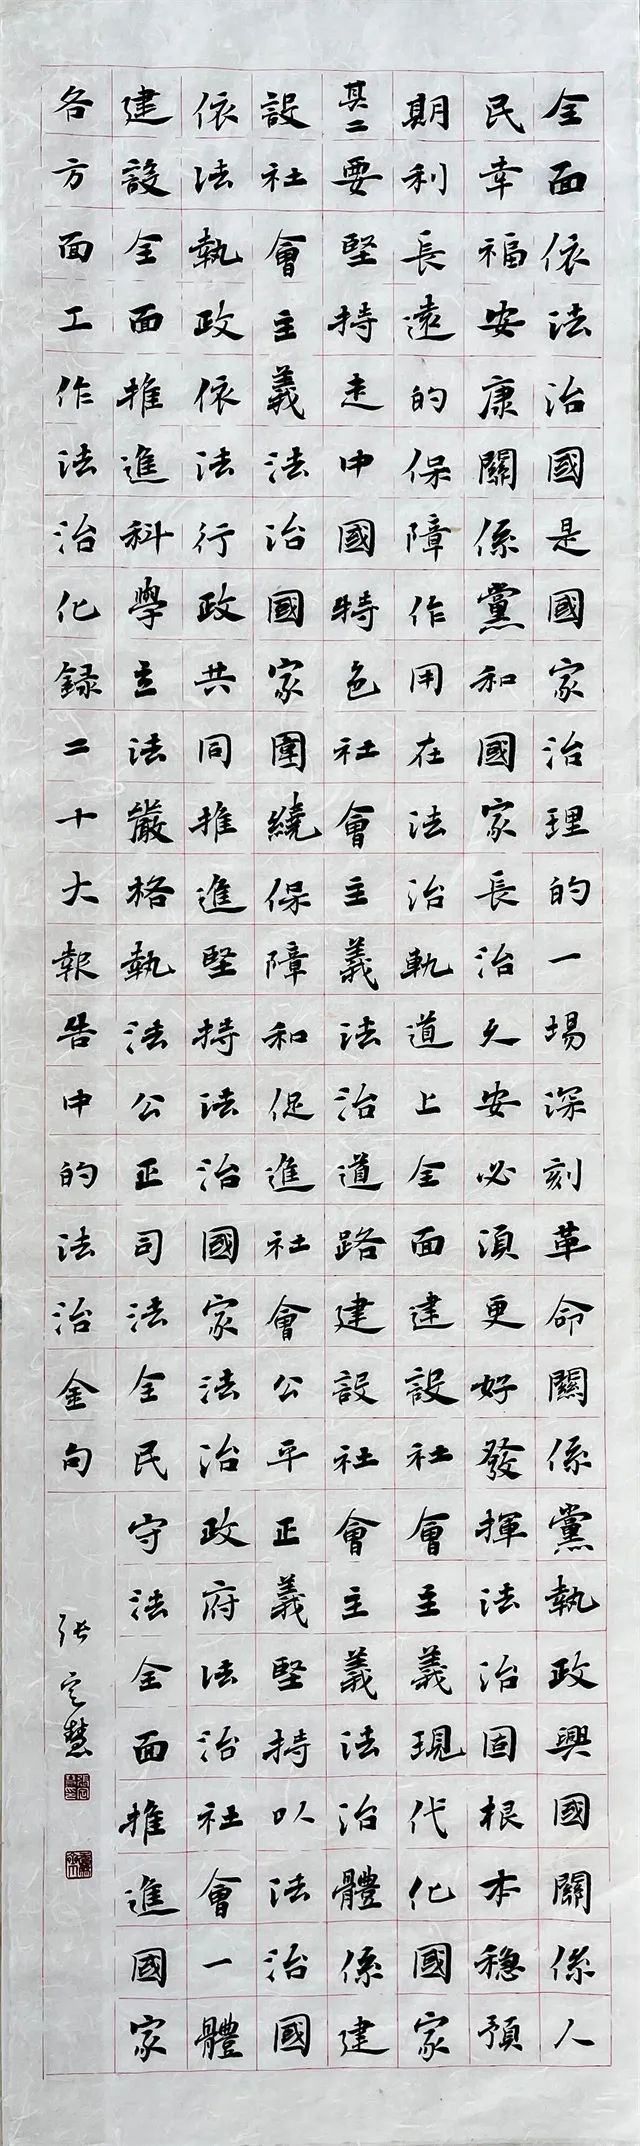 全面依法治國是國家治理的一場深刻革命關係黨執政興國關係人
民幸福安康關係黨和國家長治久安必須更好發揮法治固根本穩預
期利長遠的保障作用在法治軌道上全面建設社會主義現代化國家
其二要堅持走中國特色社會主義法治道路建設社會主義法治體係建
設社會主義法治國家圍繞保障和促進社會公平正義堅持以法治國
依法執政依法行政共同推進堅持法治國家法治政府法治社會一體
建設全面推進科學立法嚴格執法公正司法全民守法全面推進國家
各方面工作法治化録二十大報告中的法治金句
张定慧